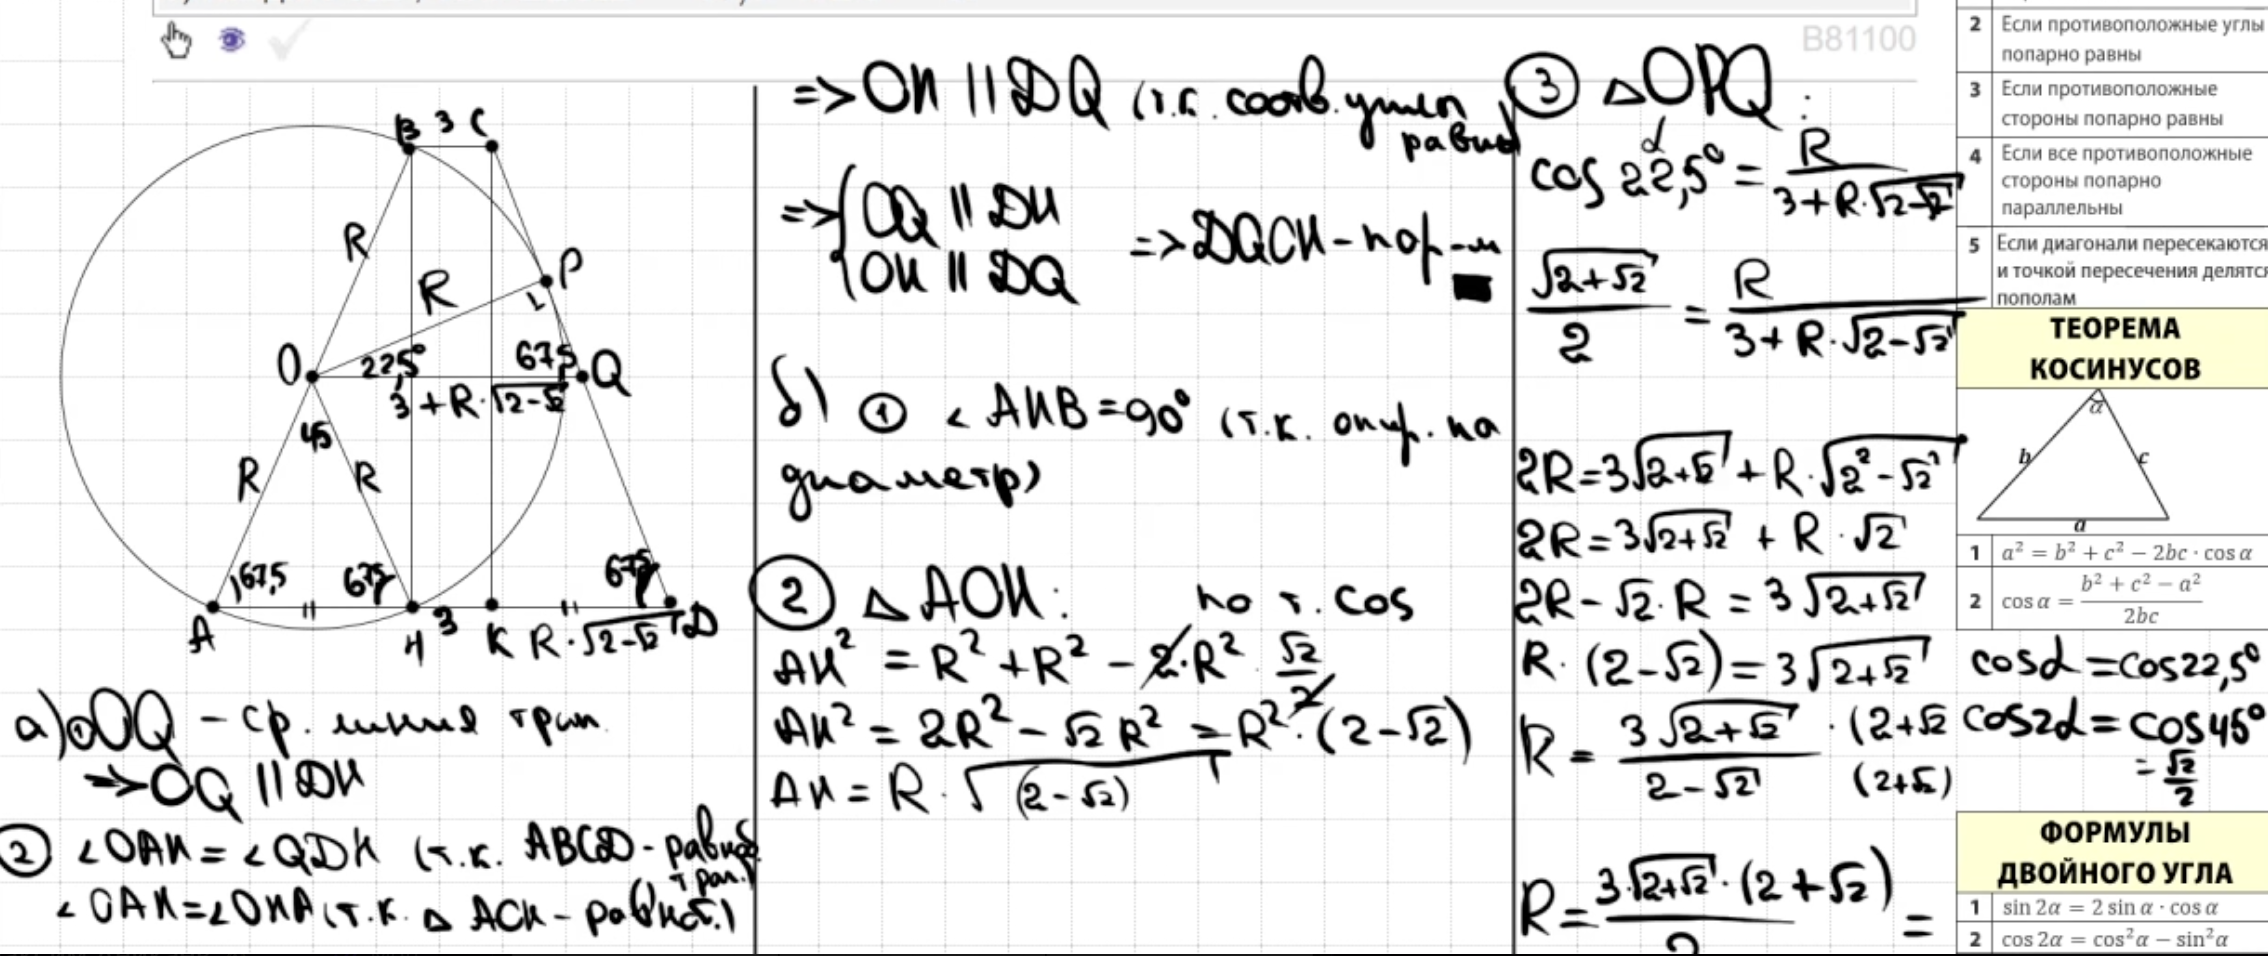 B81100
B 3 C
R
R
P
O 22,5° 67,5 Q
3 + R·√2-√2
45
R R
67,5 67,5 67,5
A H 3 K R·√2-√2 D
а) ① OQ - ср. линия трап.
=> OQ || DH
② ∠OAH = ∠QDH (т.к. ABCD - равноб. трап.)
∠OAH = ∠OHA (т.к. △ AOH - равноб.)
=> OH || DQ (т.к. соотв. углы равны)
=> { OQ || DH
OH || DQ => DQOH - пар-м
б) ① ∠AHB = 90° (т.к. опир. на
диаметр)
② △ AOH: по т. cos
AH² = R² + R² - 2·R² · √2/2
AH² = 2R² - √2 R² = R²·(2-√2)
AH = R · √(2-√2)
③ △OPQ:
α
cos 22,5° = R / 3+R·√2-√2
√2+√2 / 2 = R / 3+R·√2-√2
2R = 3√2+√2 + R·√2²-√2²
2R = 3√2+√2 + R·√2
2R - √2·R = 3√2+√2
R·(2-√2) = 3√2+√2
R = 3√2+√2 / 2-√2 · (2+√2 / (2+√2)
R = 3·√2+√2·(2+√2) / 2 =
2 Если противоположные углы
попарно равны
3 Если противоположные
стороны попарно равны
4 Если все противоположные
стороны попарно
параллельны
5 Если диагонали пересекаются
и точкой пересечения делятся
пополам
ТЕОРЕМА
КОСИНУСОВ
α
b c
a
1 a² = b² + c² − 2bc · cos α
2 cos α = b² + c² − a² / 2bc
cosα = cos22,5°
cos2α = cos45°
= √2/2
ФОРМУЛЫ
ДВОЙНОГО УГЛА
1 sin 2α = 2 sin α · cos α
2 cos 2α = cos²α − sin²α